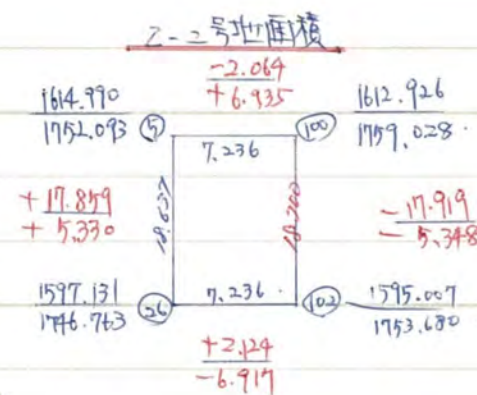 2-2号地面積
-2.064
+6.935
1614.990
1752.093
5
100
1612.926
1759.028
7.236
+17.859
+5.330
18.637
18.700
-17.919
-5.348
1597.131
1746.763
26
7.236
102
1595.007
1753.680
+2.124
-6.917